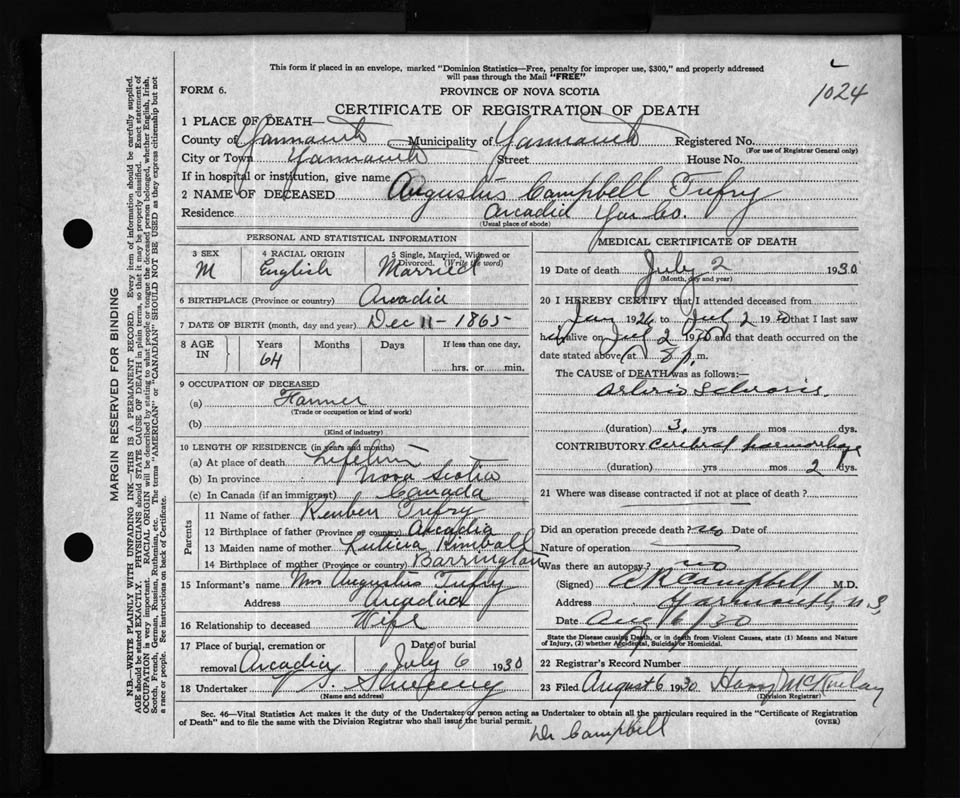 1024
This form if placed in an envelope, marked "Dominion Statistics—Free, penalty for improper use, $300," and properly addressed
will pass through the Mail "FREE"
FORM 6.
PROVINCE OF NOVA SCOTIA
CERTIFICATE OF REGISTRATION OF DEATH
1 PLACE OF DEATH—
County of Yarmouth Municipality of Yarmouth Registered No.
(For use of Registrar General only)
City or Town Yarmouth Street House No.
If in hospital or institution, give name
2 NAME OF DECEASED Augustus Campbell Trefry
Residence Arcadia Yar Co.
(Usual place of abode)
PERSONAL AND STATISTICAL INFORMATION
3 SEX 4 RACIAL ORIGIN 5 Single, Married, Widowed or
Divorced. (Write the word)
M English Married
6 BIRTHPLACE (Province or country) Arcadia
7 DATE OF BIRTH (month, day and year) Dec 11 - 1865
8 AGE IN Years Months Days If less than one day,
64 hrs. or min.
9 OCCUPATION OF DECEASED
(a) Farmer
(Trade or occupation or kind of work)
(b)
(Kind of industry)
10 LENGTH OF RESIDENCE (in years and months)
(a) At place of death Lifetime
(b) In province Nova Scotia
(c) In Canada (if an immigrant) Canada
Parents
11 Name of father Reuben Trefry
12 Birthplace of father (Province or country) Arcadia
13 Maiden name of mother Kimball
14 Birthplace of mother (Province or country) Barrington
15 Informant's name Mrs Augustus Trefry
Address Arcadia
16 Relationship to deceased Wife
17 Place of burial, cremation or Date of burial
removal Arcadia July 6 1930
18 Undertaker V. S. Sweeny
(Name and address)
MEDICAL CERTIFICATE OF DEATH
19 Date of death July 2 1930
(Month, day and year)
20 I HEREBY CERTIFY that I attended deceased from
Jan 1926 to July 2 1930 that I last saw
him alive on July 2 1930 and that death occurred on the
date stated above at 8 p. m.
The CAUSE of DEATH was as follows:—
Arterio Sclerosis
(duration) 3 yrs mos dys.
CONTRIBUTORY Cerebral haemorrhage
(duration) yrs mos 2 dys.
21 Where was disease contracted if not at place of death?
Did an operation precede death? no Date of
Nature of operation
Was there an autopsy? no
(Signed) Campbell M.D.
Address Yarmouth, N.S.
Date Aug 6/30
State the Disease causing Death, or in death from Violent Causes, state (1) Means and Nature
of Injury, (2) whether Accidental, Suicidal or Homicidal.
22 Registrar's Record Number
23 Filed August 6 1930 Harry McKinlay
(Division Registrar)
Sec. 46—Vital Statistics Act makes it the duty of the Undertaker or person acting as Undertaker to obtain all the particulars required in the "Certificate of Registration
of Death" and to file the same with the Division Registrar who shall issue the burial permit.
(OVER)
Dr Campbell
MARGIN RESERVED FOR BINDING
N.B.—WRITE PLAINLY WITH UNFADING INK—THIS IS A PERMANENT RECORD. Every item of information should be carefully supplied.
AGE should be stated EXACTLY. PHYSICIANS should STATE CAUSE OF DEATH in plain terms, so that it may be properly classified. Exact statement of
OCCUPATION is very important. RACIAL ORIGIN will be described by stating to what people or tongue the deceased person belonged, whether English, Irish,
Scotch, French, German, Russian, Ruthenian, etc. The terms "AMERICAN" or "CANADIAN" SHOULD NOT BE USED as they express citizenship but not
a race or people. See instructions on back of Certificate.